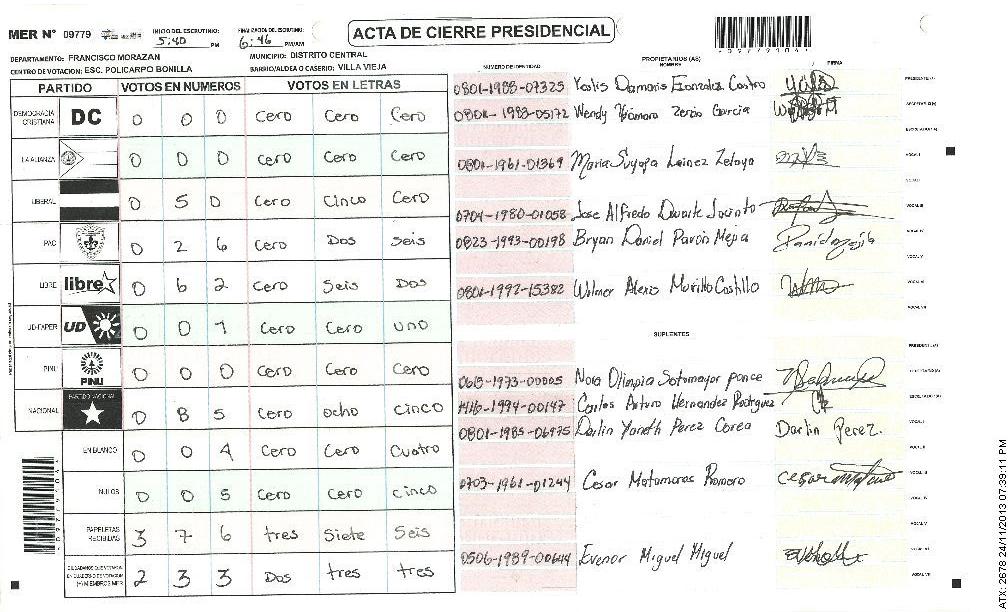 MER N° 09779
INICIO DEL ESCRUTINIO: 5:40 PM
FINALIZACION DEL ESCRUTINIO: 6:46 PM/AM
ACTA DE CIERRE PRESIDENCIAL
DEPARTAMENTO: FRANCISCO MORAZAN
MUNICIPIO: DISTRITO CENTRAL
CENTRO DE VOTACION: ESC. POLICARPO BONILLA
BARRIO/ALDEA O CASERIO: VILLA VIEJA
PARTIDO VOTOS EN NUMEROS VOTOS EN LETRAS
DEMOCRACIA CRISTIANA DC 0 0 0 Cero Cero Cero
LA ALIANZA 0 0 0 Cero Cero Cero
LIBERAL 0 5 0 Cero Cinco Cero
PAC 0 2 6 Cero Dos Seis
LIBRE libre 0 6 2 Cero Seis Dos
UD-FAPER UD 0 0 1 Cero Cero uno
PINU PINU 0 0 0 Cero Cero Cero
NACIONAL PARTIDO NACIONAL 0 8 5 Cero ocho cinco
EN BLANCO 0 0 4 Cero Cero Cuatro
NULOS 0 0 5 Cero Cero cinco
PAPELETAS RECIBIDAS 3 7 6 tres Siete Seis
CIUDADANOS QUE VOTARON EN CUADERNO DE VOTACION (+) MIEMBROS MER 2 3 3 Dos tres tres
NUMERO DE IDENTIDAD PROPIETARIOS (AS) NOMBRE FIRMA
0801-1988-07325 Damaris Gonzalez Castro PRESIDENTE (A)
0801-1983-05172 Wendy Xiomara Garcia SECRETARIO(A)
ESCRUTADOR(A)
0801-1961-01369 Maria Suyapa Lainez Zelaya VOCAL I
VOCAL II
0704-1980-01058 Jose Alfredo Duarte Jacinto VOCAL III
0823-1993-00198 Bryan Daniel Pavon Mejia VOCAL IV
VOCAL V
0801-1992-15382 Wilmer Alexis Murillo Castillo VOCAL VI
VOCAL VII
SUPLENTES
PRESIDENTE (A)
0615-1973-00005 Nora Olimpia Sotomayor ponce SECRETARIO(A)
1416-1994-00147 Carlos Arturo Hernandez Rodriguez ESCRUTADOR(A)
0801-1985-06975 Darlin Yaneth Perez Corea Darlin Perez. VOCAL I
VOCAL II
0703-1961-01244 Cesar Matamoros Romero VOCAL III
VOCAL IV
VOCAL V
0506-1989-00644 Evenor Miguel Miguel VOCAL VI
VOCAL VII
ATX: 2678 24/11/2013 07:39:11 PM